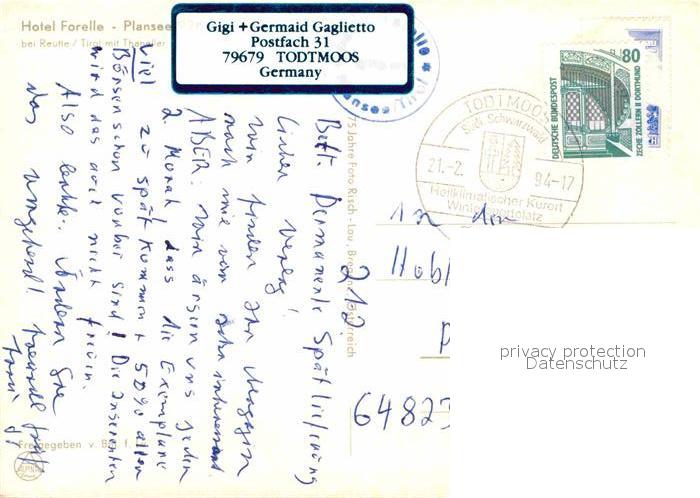 Hotel Forelle - Plansee
bei Reutte / Tirol mit Thaneller
Gigi + Germaid Gaglietto
Postfach 31
79679 TODTMOOS
Germany
Plansee/Tirol
80
DEUTSCHE BUNDESPOST
ZECHE ZOLLERN II DORTMUND
TODTMOOS
Südl. Schwarzwald
21.-2. 94-17
Heilklimatischer Kurort
Wintersportplatz
75 Jahre Foto Risch-Lau, Bregenz Österreich
Betr. Permanente Spätlieferung
Lieber Verlag!
wir finden Ihr Magazin
nach wie vor sehr interessant.
ABER: wir ärgern uns jeden
2. Monat, dass die Exemplare
viel zu spät kommen + 50% aller
Börsen schon vorbei sind! Die Inserenten
wird das auch nicht freuen.
Also bitte: Ändern Sie
das umgehend!
An den
212
64823
privacy protection
Datenschutz
Freigegeben v. B
ALPINA